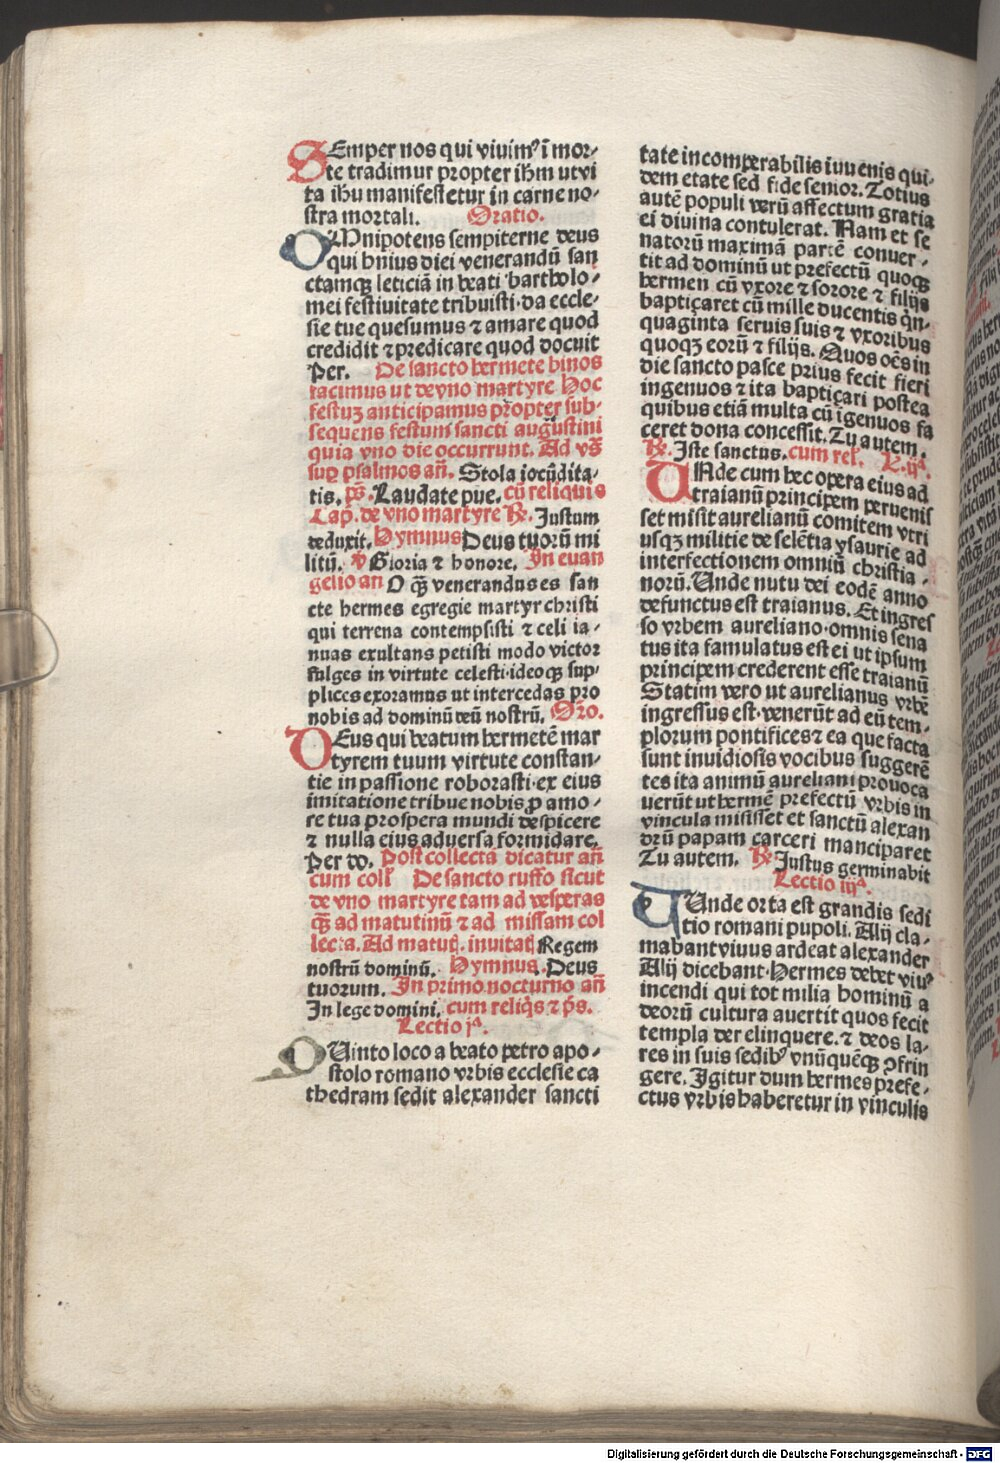 SEmper nos qui viuimꝰ ī mor⸗
te tradimur propter ihm ut vi
ta ihu manifestetur in carne no⸗
stra mortali. Oratio.
OMnipotens sempiterne deus
qui hnius diei venerandū san
ctamqꝫ leticiā in beati bartholo⸗
mei festiuitate tribuisti·da eccle⸗
sie tue quesumus ⁊ amare quod
credidit ⁊ predicare quod docuit
Per. De sancto hermete binos
facimus ut de vno martyre Hoc
festuꝫ anticipamus propter sub⸗
sequens festum sancti augustini
quia vno die occurrunt. Ad vs̄
suꝑ psalmos añ. Stola iocūdita⸗
tis. ps̄. Laudate pue. cū reliquis
Cap. de vno martyre ℟. Justum
deduxit. Hymnus Deus tuorū mi
litū. ℣ Gloria ⁊ honore. In euan
gelio an O qꝫ venerandus es san
cte hermes egregie martyr christi
qui terrena contempsisti ⁊ celi ia⸗
nuas exultans petisti modo victor
fulges in virtute celesti·ideoqꝫ sup⸗
plices exoramus ut intercedas pro
nobis ad dominū deū nostrū. Oro.
DEus qui beatum hermetē mar
tyrem tuum virtute constan⸗
tie in passione roborasti·ex eius
imitatione tribue nobis ꝓ amo⸗
re tua prospera mundi despicere
⁊ nulla eius aduersa formidare.
Per do. Post collectā dicatur añ
cum coll De sancto ruffo sicut
de vno martyre tam ad vesperas
qꝫ ad matutinū ⁊ ad missam col
lecta. Ad matuꝭ. inuitaꝭ Regem
nostrū dominū. Hymnus. Deus
tuorum. In primo nocturno añ
In lege domini. cum reliqis ⁊ ps.
Lectio jª.
QUinto loco a beato petro apo⸗
stolo romano vrbis ecclesie ca
thedram sedit alexander sancti
tate incomperabilis iuuenis qui⸗
dem etate sed fide senior. Totius
autē populi verū affectum gratia
ei diuina contulerat. Nam et se
natorū maximā partē conuer⸗
tit ad dominū ut prefectū quoqꝫ
hermen cū vxore ⁊ sorore ⁊ filijs
baptiçaret cū mille ducentis qin⸗
quaginta seruis suis ⁊ vxoribus
quoqꝫ eorū ⁊ filijs. Quos oēs in
die sancto pasce prius fecit fieri
ingenuos ⁊ ita baptiçari postea
quibus etiā multa cū igenuos fa
ceret dona concessit. Tu autem.
℟. Iste sanctus. cum rel. L. ijª.
UNde cum hec opera eius ad
traianū principem peruenis
set misit aurelianū comitem vtri
usqꝫ militie de selētia ysaurie ad
interfectionem omniū christia⸗
norū. Unde nutu dei eodē anno
defunctus est traianus. Et ingres
so vrbem aureliano·omnis sena
tus ita famulatus est ei ut ipsum
principem crederent esse traianū
Statim vero ut aurelianus vrbē
ingressus est·venerūt ad eū tem⸗
plorum pontifices ⁊ ea que facta
sunt inuidiosis vocibus suggerē
tes ita animū aureliani prouoca
uerūt ut hermē prefectū vrbis in
vincula misisset et sanctū alexan
drū papam carceri manciparet
Tu autem. ℟ Justus germinabit
Lectio iijª.
UUnde orta est grandis sedi
tio romani pupoli. Alij cla⸗
mabant viuus ardeat alexander
Alij dicebant·Hermes debet viuꝰ
incendi qui tot milia hominū a
deorū cultura auertit quos fecit
templa derelinquere. ⁊ deos la⸗
res in suis sedibꝰ vnūquēqꝫ ꝯfrin
gere. Igitur dum hermes prefe⸗
ctus vrbis haberetur in vinculis
Digitalisierung gefördert durch die Deutsche Forschungsgemeinschaft - DFG